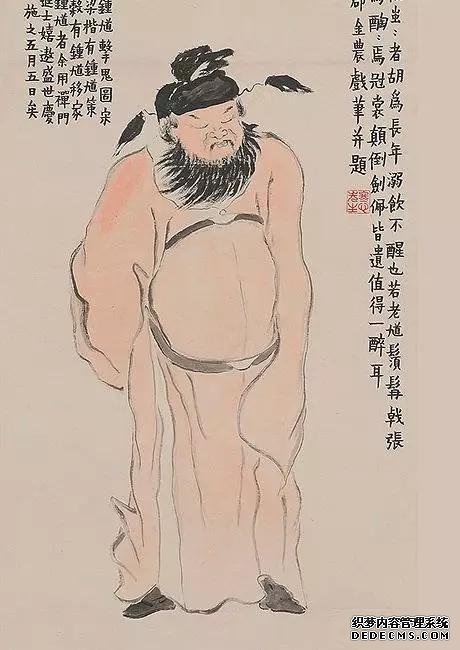 蚩〻者胡為長年溺飲不醒也若老馗鬚髯戟張
醄〻焉冠裳顛倒劍佩皆遺值得一醉耳
郡金農戲筆并題
鍾馗擊鬼圖宋
梁楷有鍾馗策
穀有鍾馗移家
鍾馗者余用禪門
進士嬉遨盛世慶
施之五月五日矣
织梦内容管理系统
DEDECMS.COM